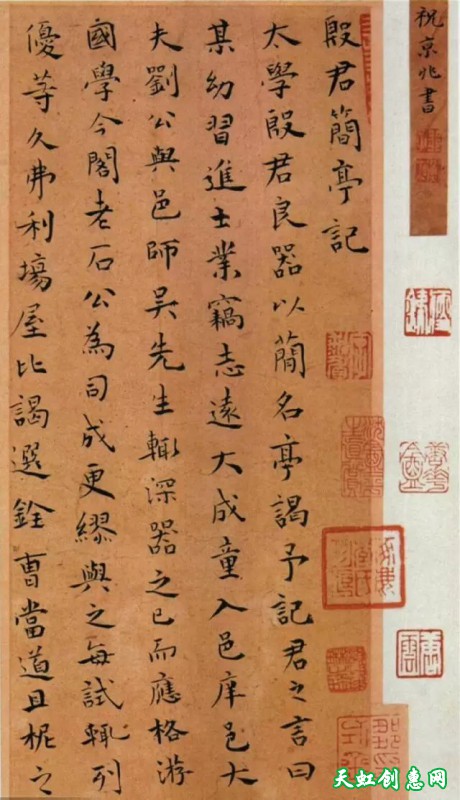 祝京兆書
殷君簡亭記
太學殷君良器以蕳名亭謁予記君之言曰
某幼習進士業竊志遠大成童入邑庠邑大
夫劉公與邑師吴先生輙深器之已而應格游
國學今閣老石公為司成更繆與之每試輙列
優等久弗利塲屋比謁選銓曹當道且柅之
天虹创惠网